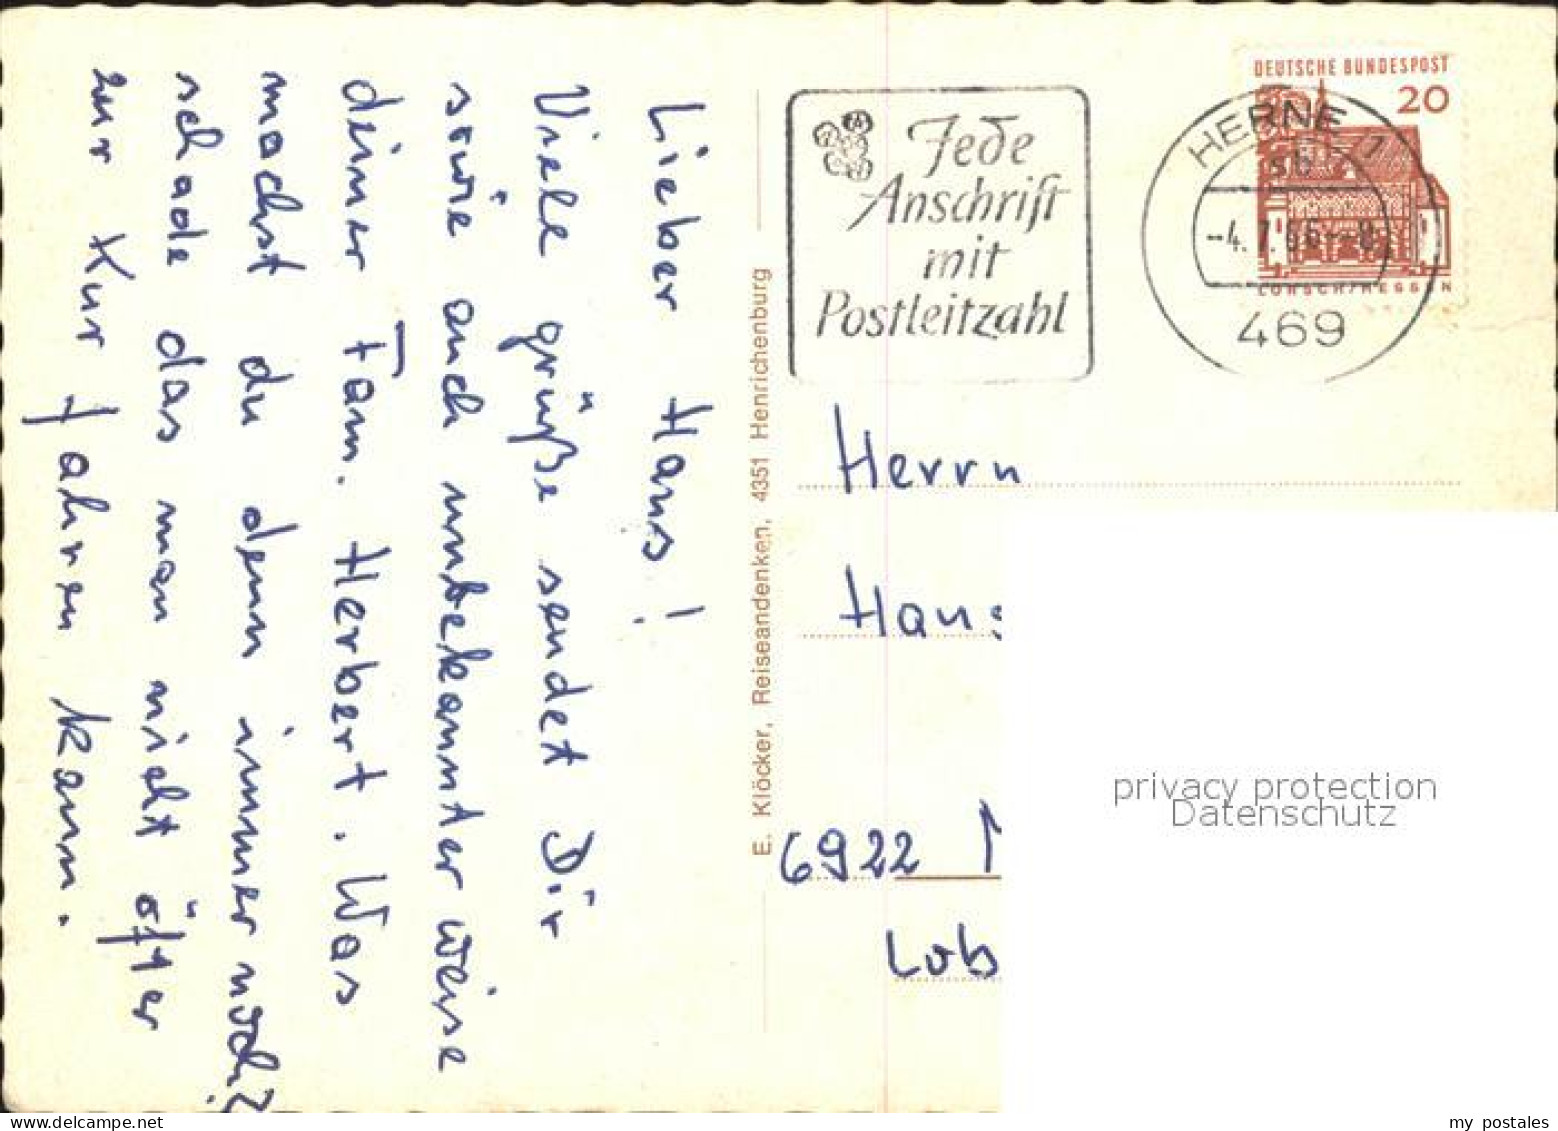 Lieber Hans!
Viele grüße sendet Dir
sowie auch unbekannter weise
deiner Fam. Herbert. Was
machst du denn immer noch?
schade das man nicht öfter
zur Kur fahren kann.
E. Klöcker, Reiseandenken, 4351 Henrichenburg
Jede
Anschrift
mit
Postleitzahl
HERNE 1
sb
-4.7.66--8
469
DEUTSCHE BUNDESPOST
20
LORSCH/HESSEN
Herrn
Hans
6922
Lob
privacy protection
Datenschutz
my postales